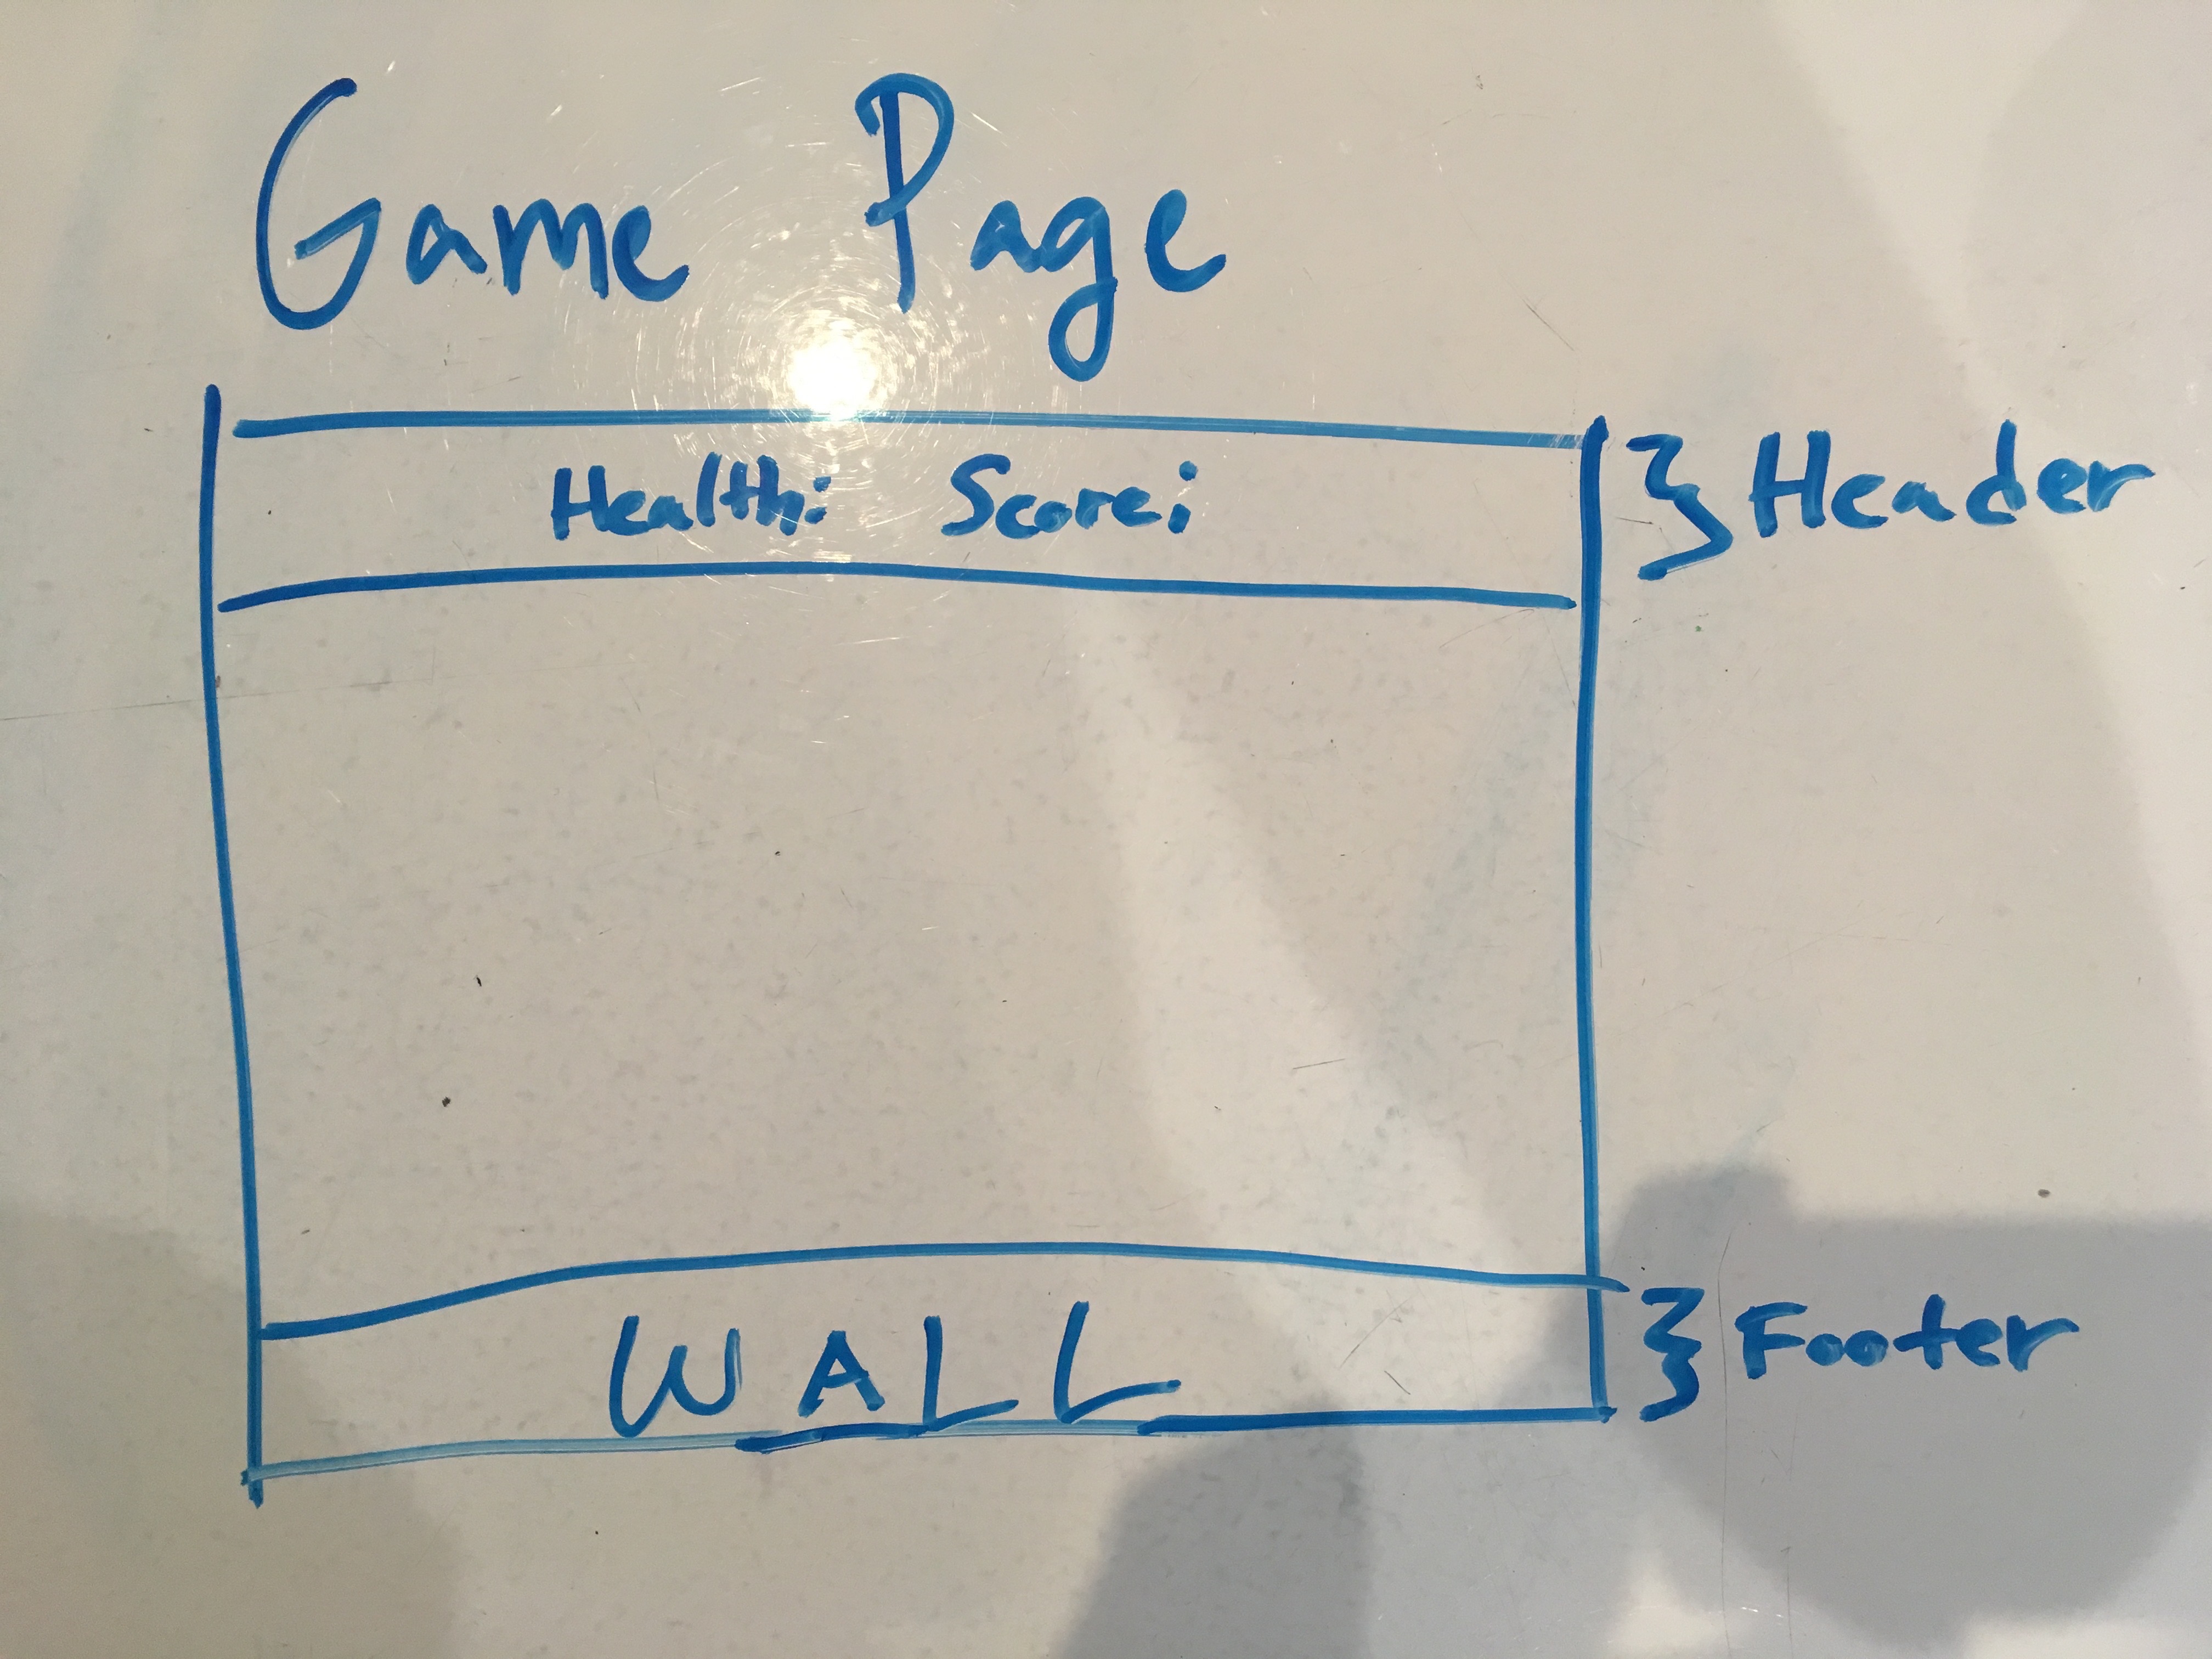 Game Page
Health: Score:
} Header
WALL
} Footer